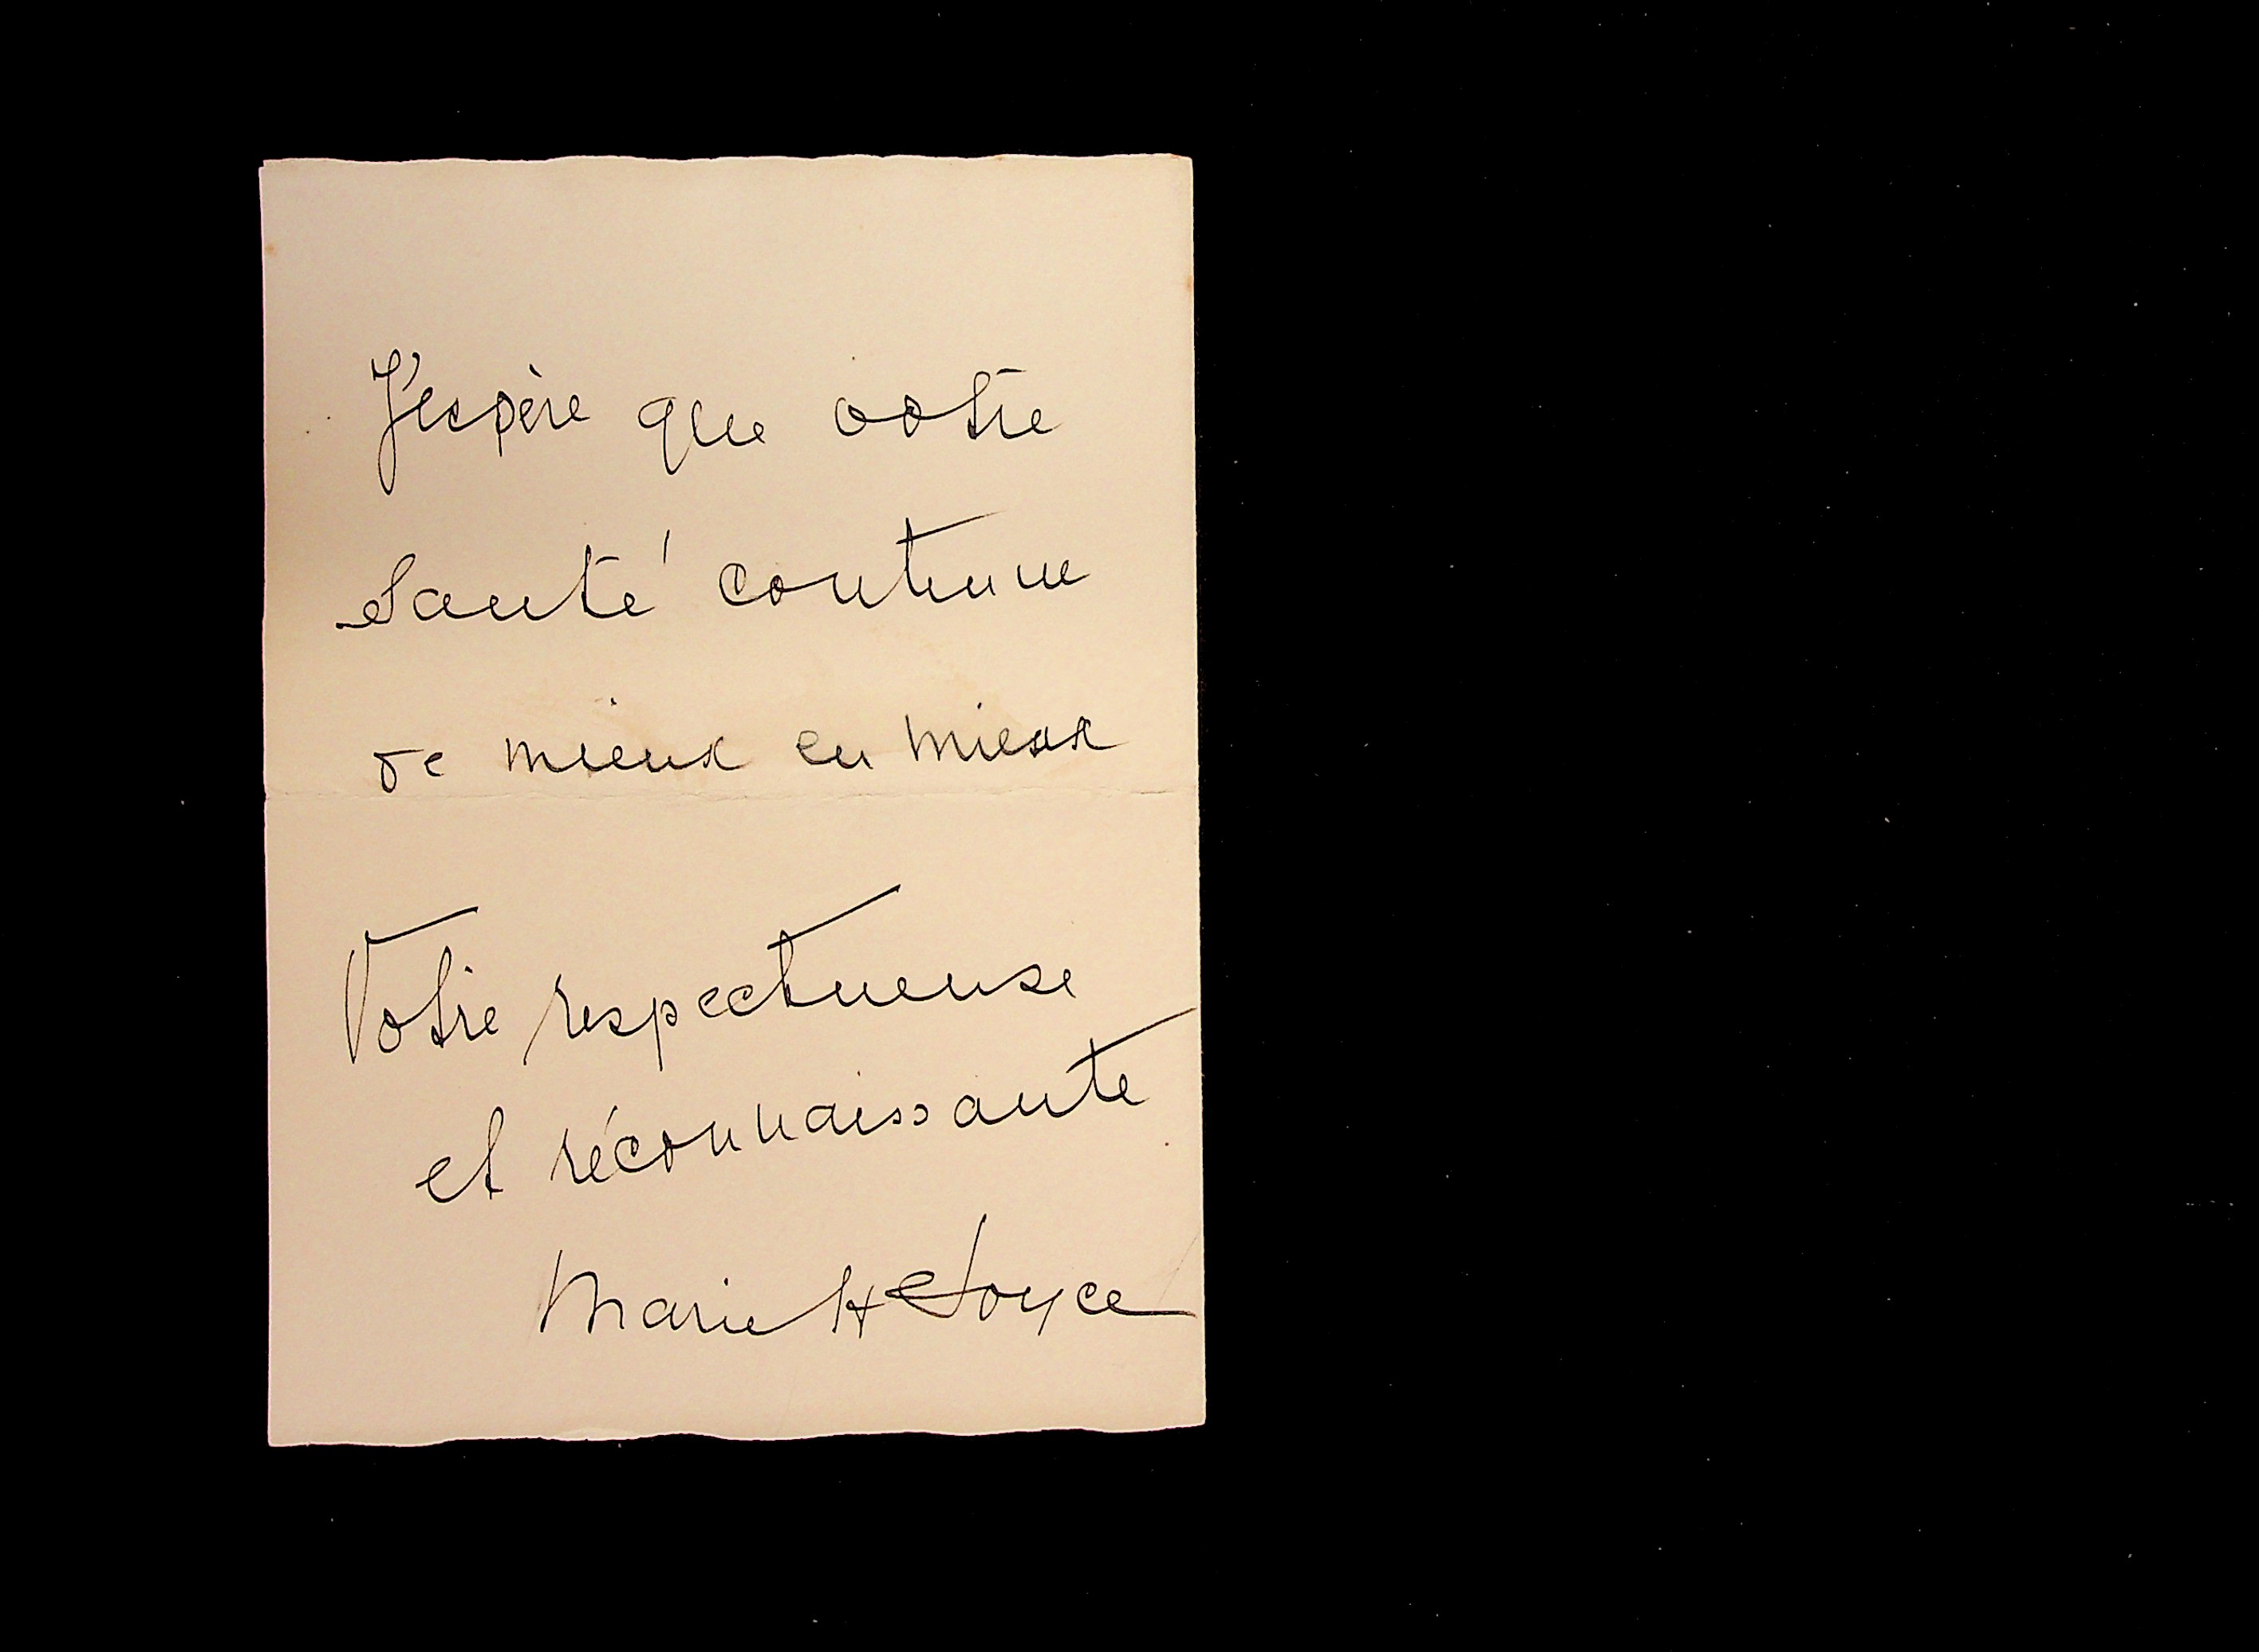 J'espère que votre
Santé continue
de mieux en mieux
Votre respectueuse
et réconnaissante
Marie H Joyce